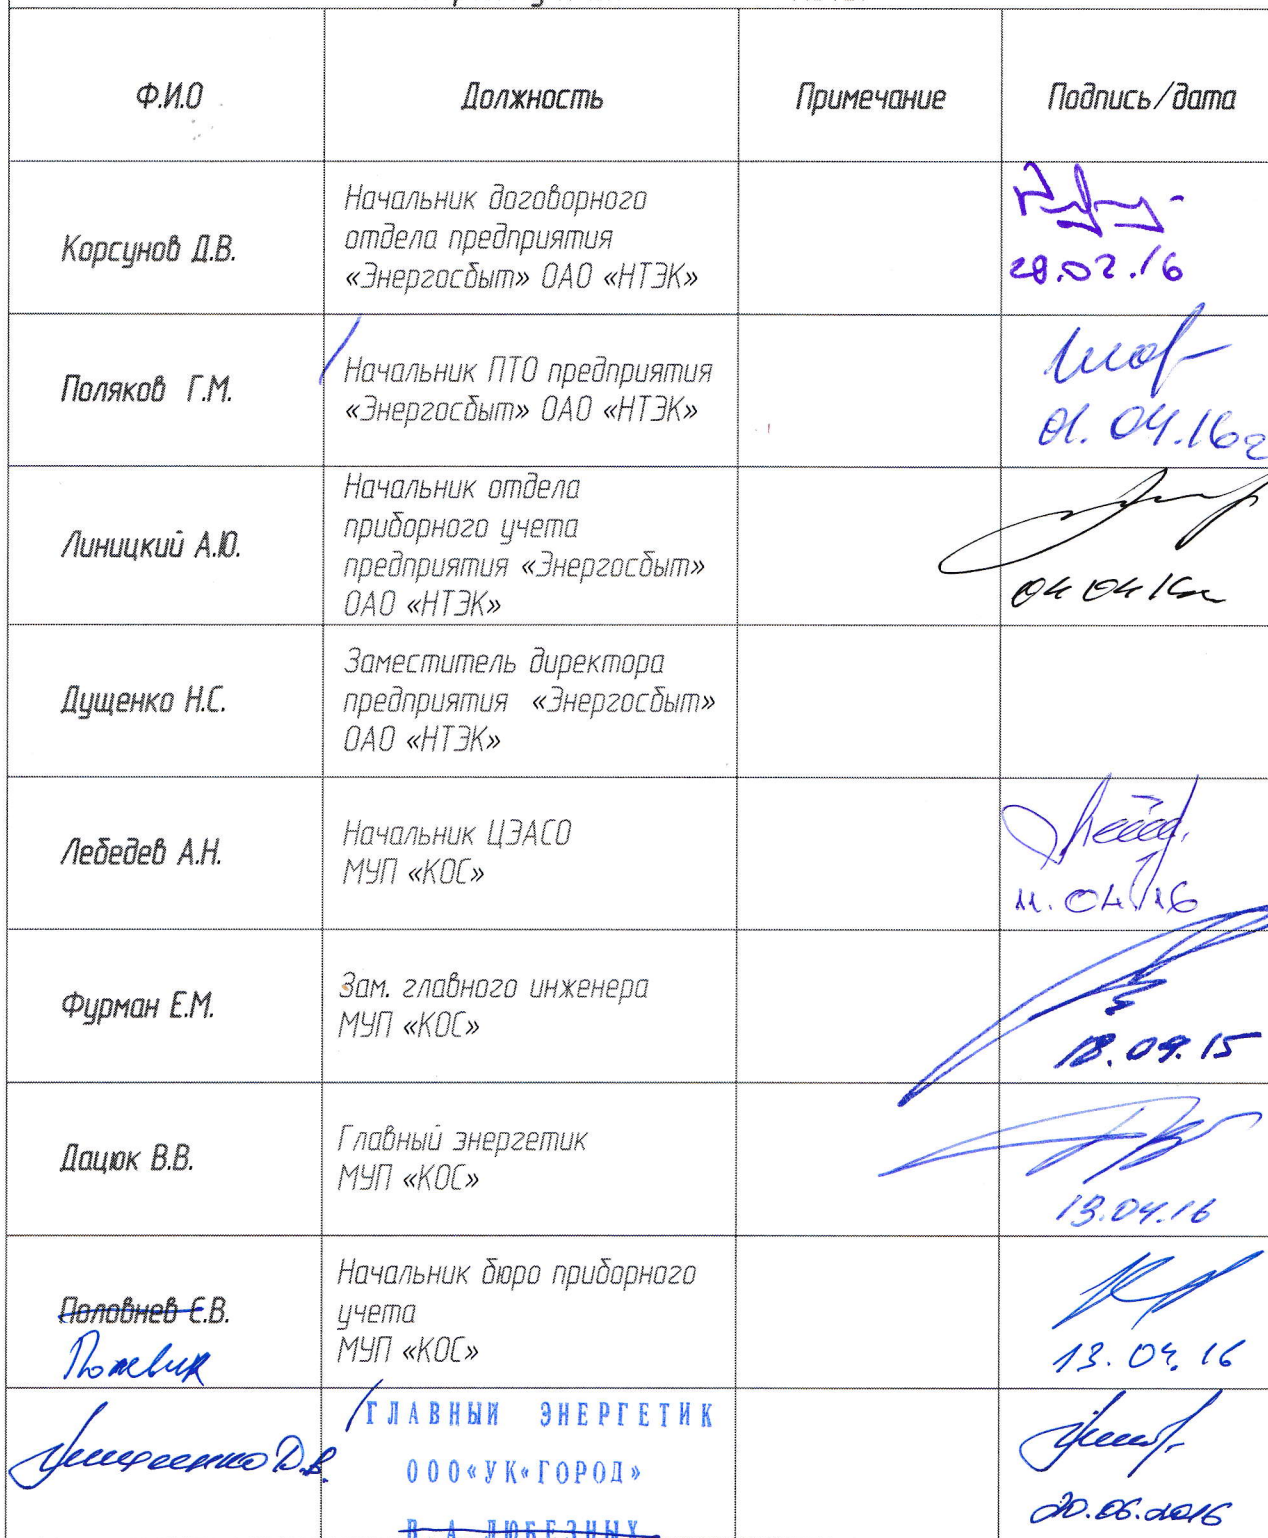 Ф.И.О Должность Примечание Подпись/дата
Корсунов Д.В.
Начальник договорного
отдела предприятия
«Энергосбыт» ОАО «НТЭК»
29.02.16
Поляков Г.М.
Начальник ПТО предприятия
«Энергосбыт» ОАО «НТЭК»
01.04.16г
Линицкий А.Ю.
Начальник отдела
приборного учета
предприятия «Энергосбыт»
ОАО «НТЭК»
04 04 16г
Дущенко Н.С.
Заместитель директора
предприятия «Энергосбыт»
ОАО «НТЭК»
Лебедев А.Н.
Начальник ЦЭАСО
МУП «КОС»
11.04.16
Фурман Е.М.
Зам. главного инженера
МУП «КОС»
18.09.15
Дацюк В.В.
Главный энергетик
МУП «КОС»
13.04.16
Половнев Е.В.
Начальник бюро приборного
учета
МУП «КОС»
13.04.16
Д.В.
ГЛАВНЫЙ ЭНЕРГЕТИК
ООО«УК«ГОРОД»
В А ЛЮБЕЗНЫХ
20.06.2016